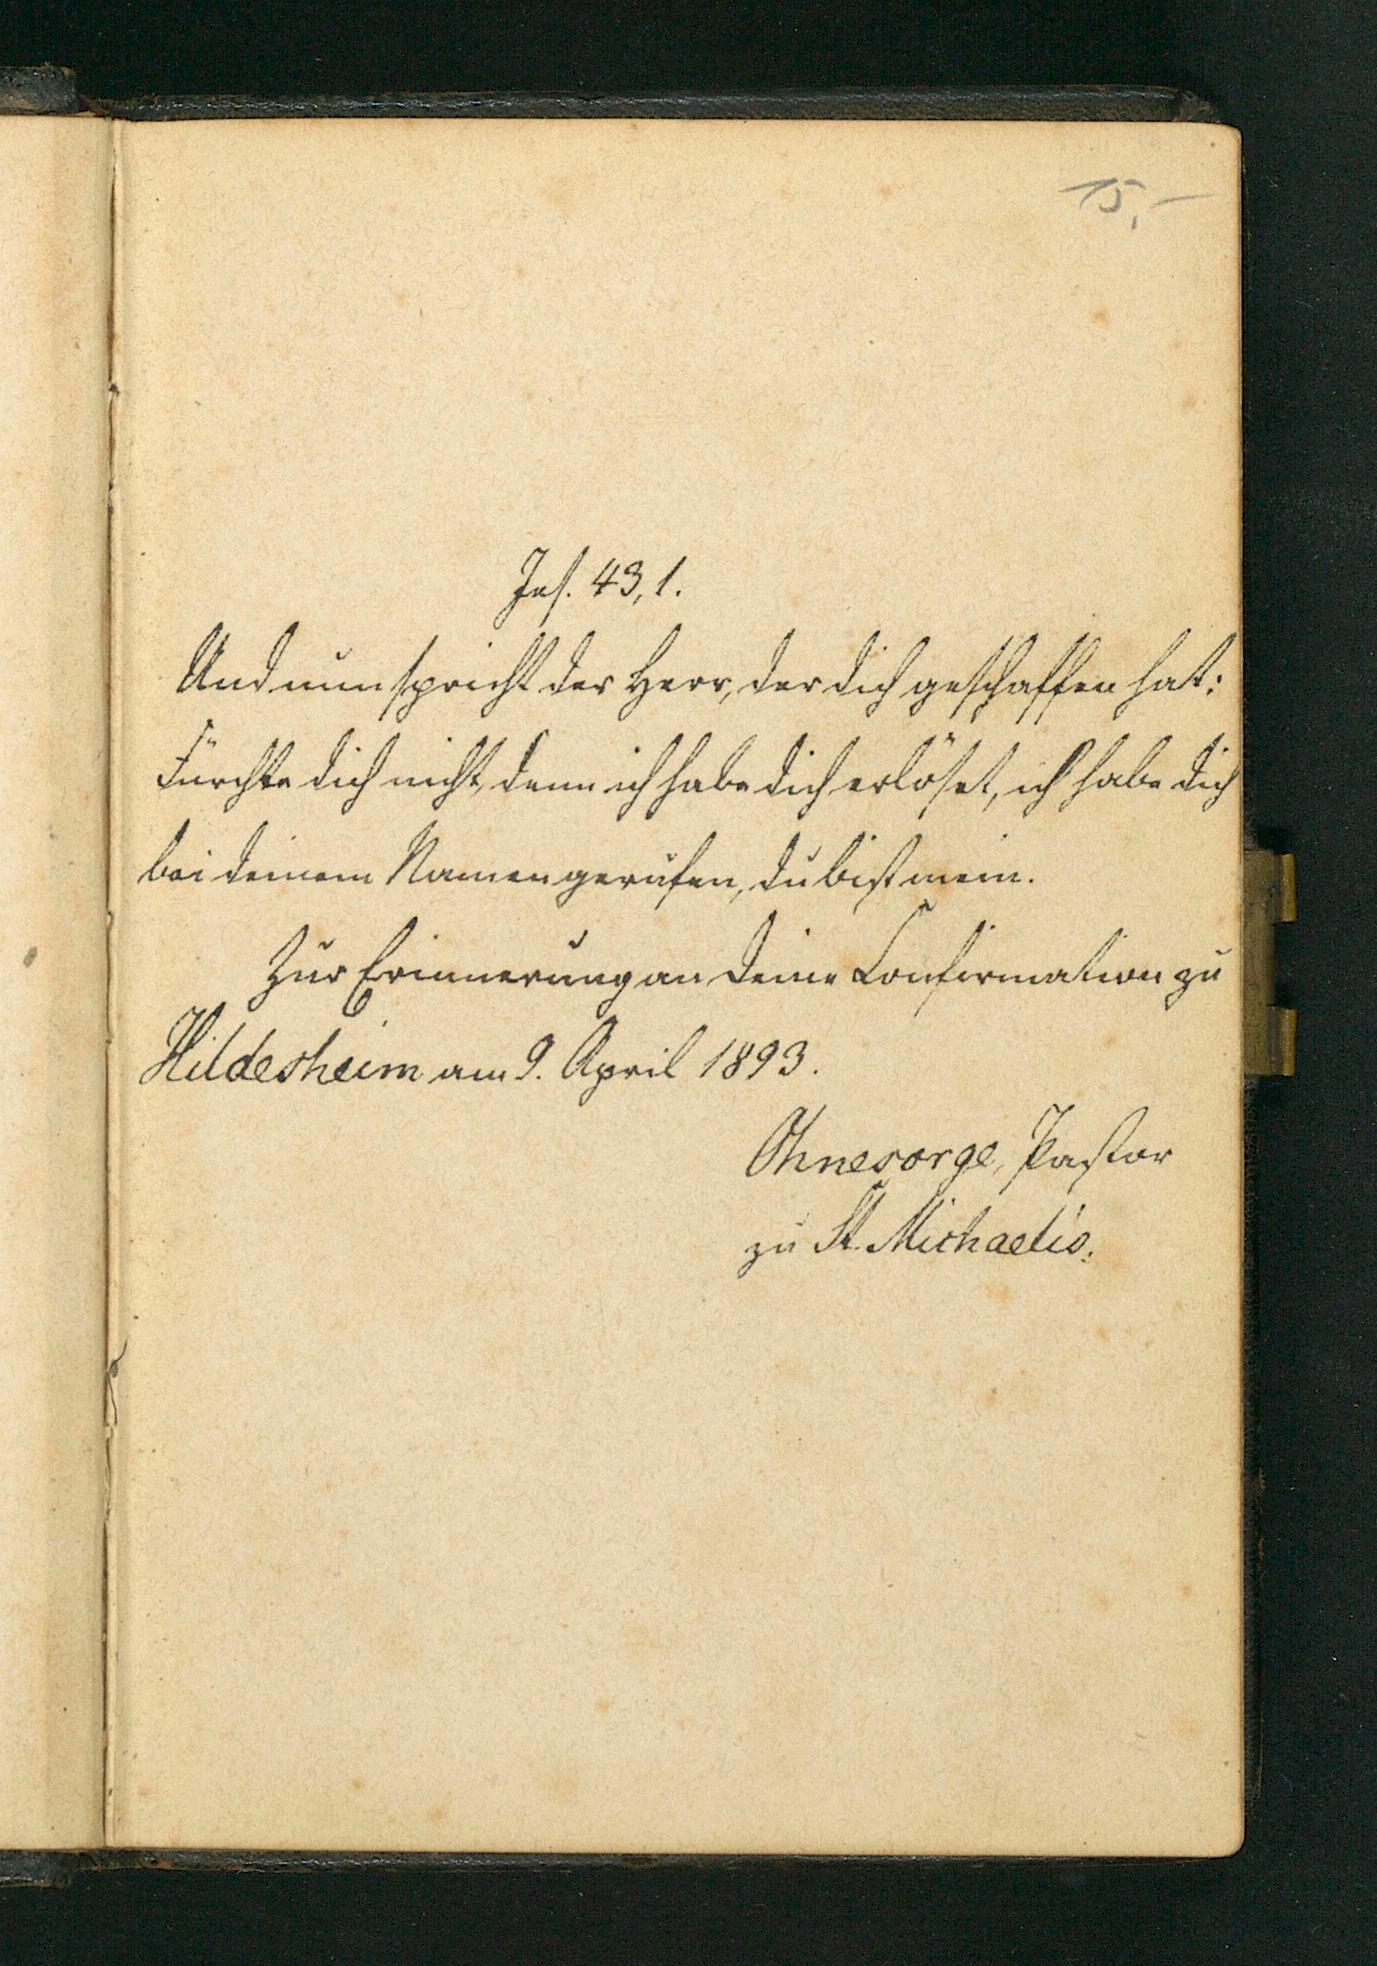 15,-
Jes. 43, 1.
Und nun spricht der Herr, der dich geschaffen hat:
Fürchte dich nicht, denn ich habe dich erlöset, ich habe dich
bei deinem Namen gerufen, du bist mein.
Zur Erinnerung an Deine Confirmation zu
Hildesheim am 9. April 1893.
Ohnesorge, Pastor
zu St. Michaelis.